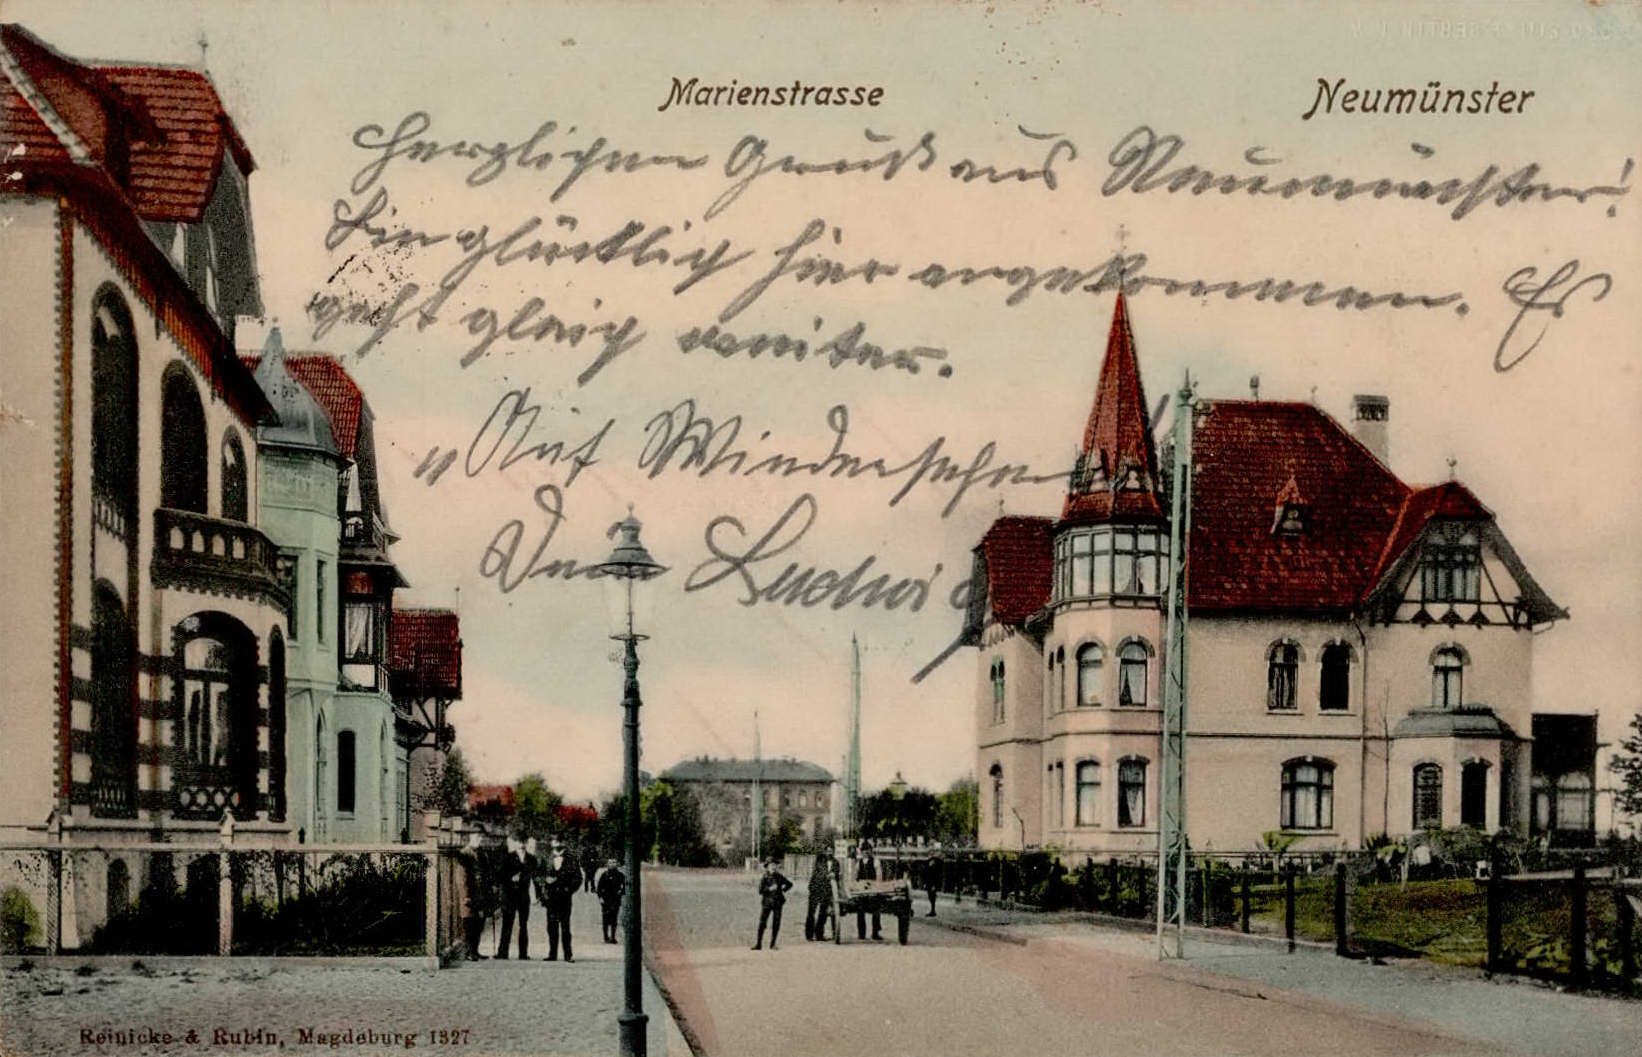 Marienstrasse
Neumünster
Herzlichen Gruß aus Neumünster!
Bin glücklich hier angekommen. Es
geht gleich weiter.
„Auf Wiedersehen"
Dein Ludwig
Reinicke & Rubin, Magdeburg 1327